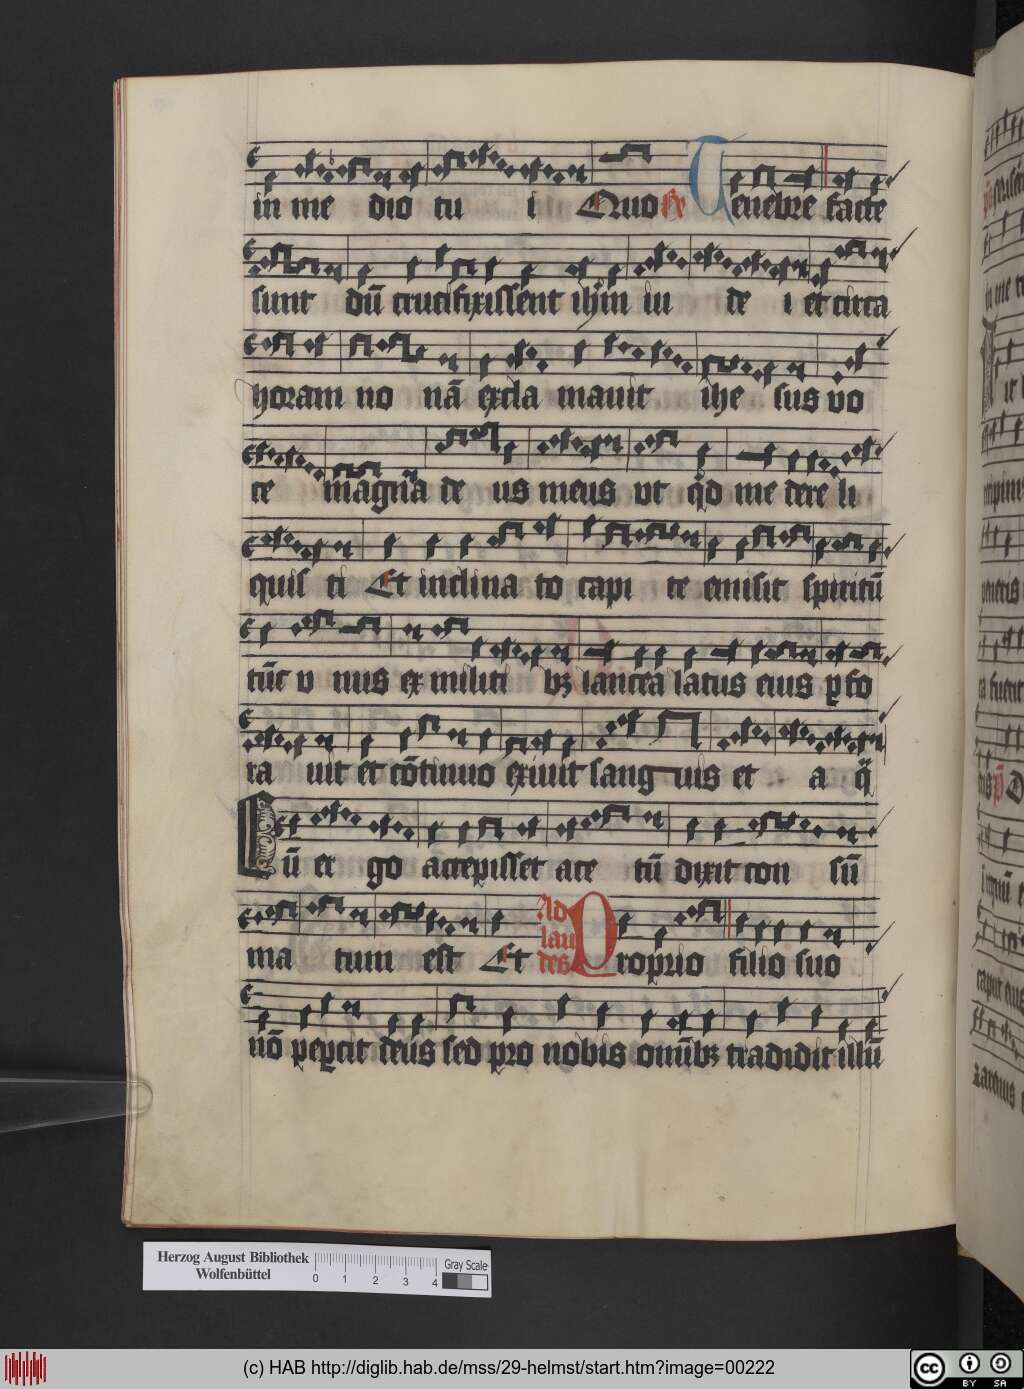 in me dio tu i Quo Re Tenebre facte
sunt dū crucifixissent ihm̄ iu de i et circa
horam no nā excla mauit ihe sus vo
ce magna de us meus vt qd̓ me dere li
quis ti Et inclina to capi te emisit spiritū
tūc v nus ex militi bꝫ lancea latus eius ꝑfo
ra uit et cōtinuo exiuit sang uis et a q̄
Cū er go accepisset ace tū dixit con sū
ma tum est Et Ad lau des Proprio filio suo
nō peꝑcit deus sed pro nobis omībꝫ tradidit illū
Herzog August Bibliothek
Wolfenbüttel
0 1 2 3 4
Gray Scale
(c) HAB http://diglib.hab.de/mss/29-helmst/start.htm?image=00222
cc BY SA